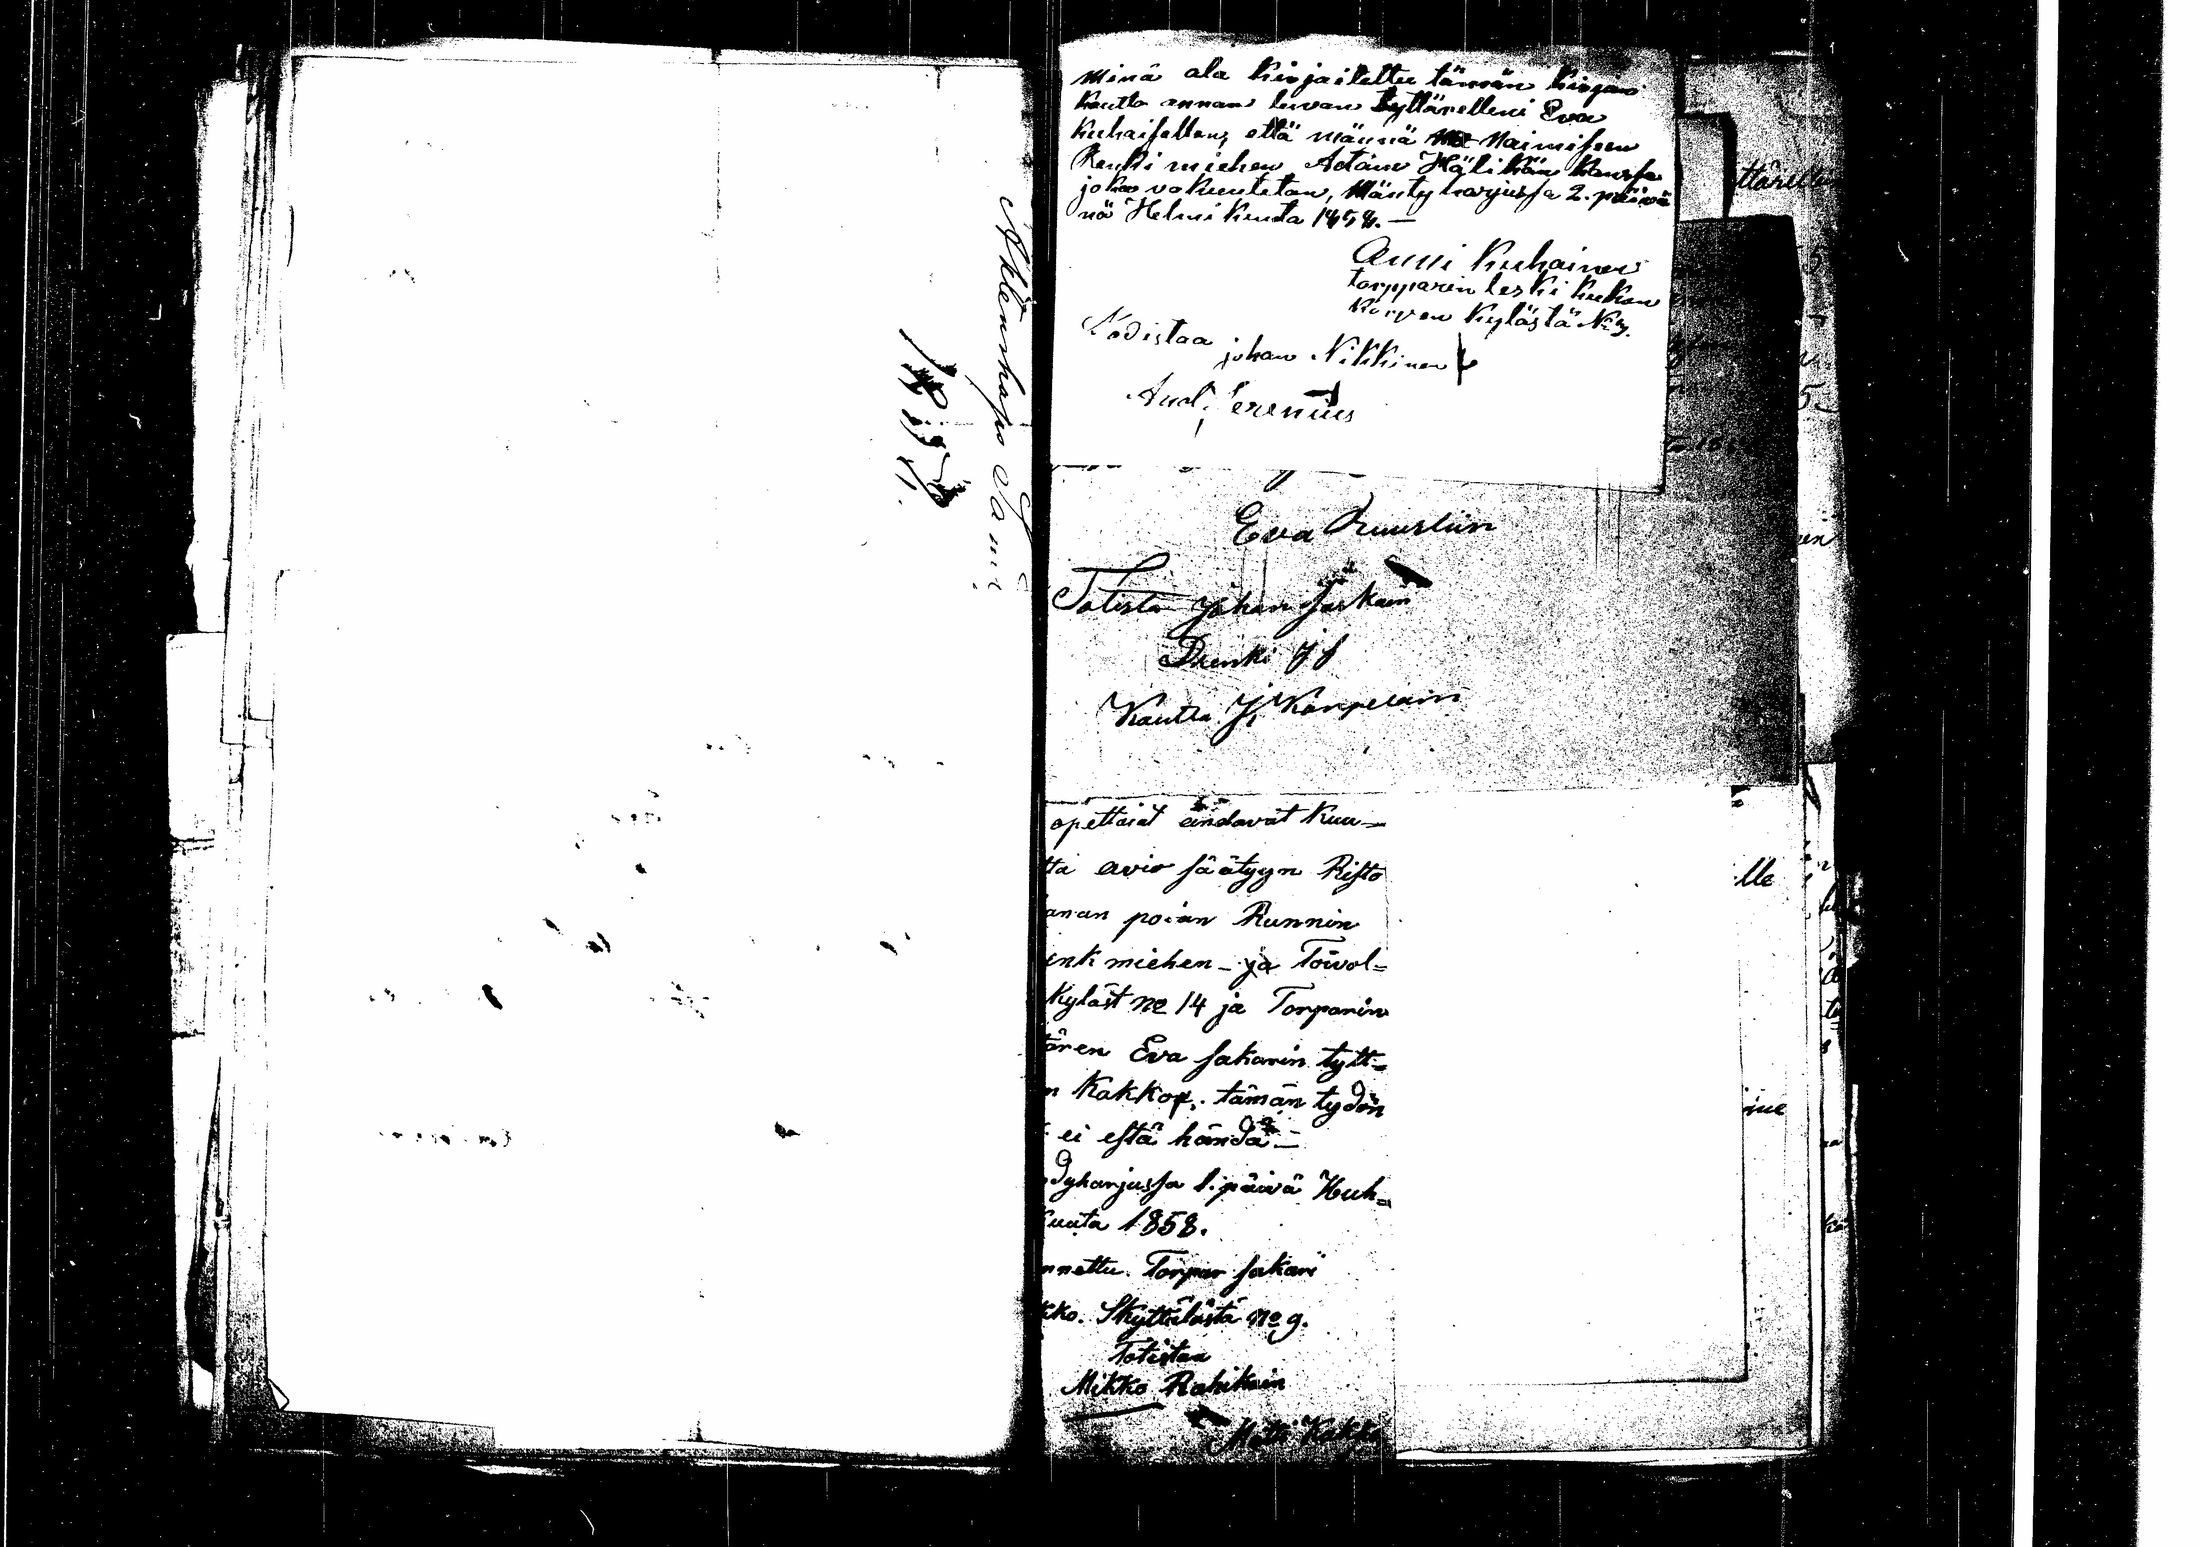 Äktenskaps Tanit
1858.
Minä ala Kirjaitettu tämän Kirjan
kautta annan luvan tyttärelleni Eva
Kuhaisellen, että männä Naimiseen
Renki miehen Adam Hälikän kanssa
joka vakuutetan, Mäntyharjussa 2. päivä
nä Helmi Kuuta 1858. —
Anni Kuhainen
torpparin leski Kukon
Korven Kylästä No 9.
Todistaa
johan Nikkinen
And. Serenius
Eva Ruuskiin
Totista Johan
Drenki J J
Kautta J, Karpelain
opettaiat andavat Kuu-
ta avio säätyyn Risto
anan poian Runnin
enk miehen - ja Toivol=
Kyläst no 14 ja Torparin
tären Eva Sakarin tytt=
n Kakkox, tämän tydön
ei estä händä —
dyharjussa 1. päivä Huh=
kuuta 1858.
nnettu. Torpar Sakari
kko. Skyttälästä no 9.
Totistaa
Mikko Rahikain
Matti Kakko
ttärellen
lle